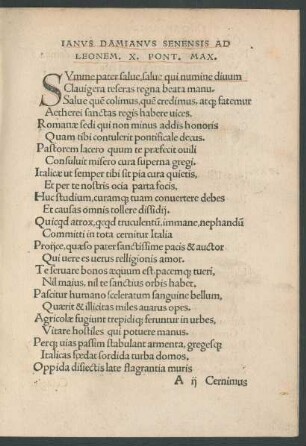 IANVS DAMIANVS SENENSIS AD
LEONEM. X. PONT. MAX.
SVmme pater salue, salue qui numine diuum
Clauigera reseras regna beata manu.
Salue quē colimus, quē credimus, atq; fatemur
Aetherei sanctas regis habere uices.
Romanæ sedi qui non minus addis honoris
Quam tibi contulerit pontificale decus.
Pastorem lacero quum te præfecit ouili
Consuluit misero cura superna gregi.
Italicæ ut semper tibi sit pia cura quietis,
Et per te nostris ocia parta focis.
Huc studium, curamq; tuam conuertere debes
Et causas omnis tollere dissidij.
Quicqd atrox, qcqd truculentū, immane, nephandū
Committi in tota cernitur Italia
Proijce, quæso pater sanctissime pacis & auctor
Qui uere es uerus relligionis amor.
Te seruare bonos æquum est, pacemq; tueri,
Nil maius, nil te sanctius orbis habet.
Pascitur humano sceleratum sanguine bellum,
Quærit & illicitas miles auarus opes.
Agricolæ fugiunt trepidiq; feruntur in urbes,
Vitare hostiles qui potuere manus.
Perq; uias passim stabulant armenta, gregesq;
Italicas spedat sordida turba domos,
Oppida disiectis late flagrantia muris
A ij Cernimus